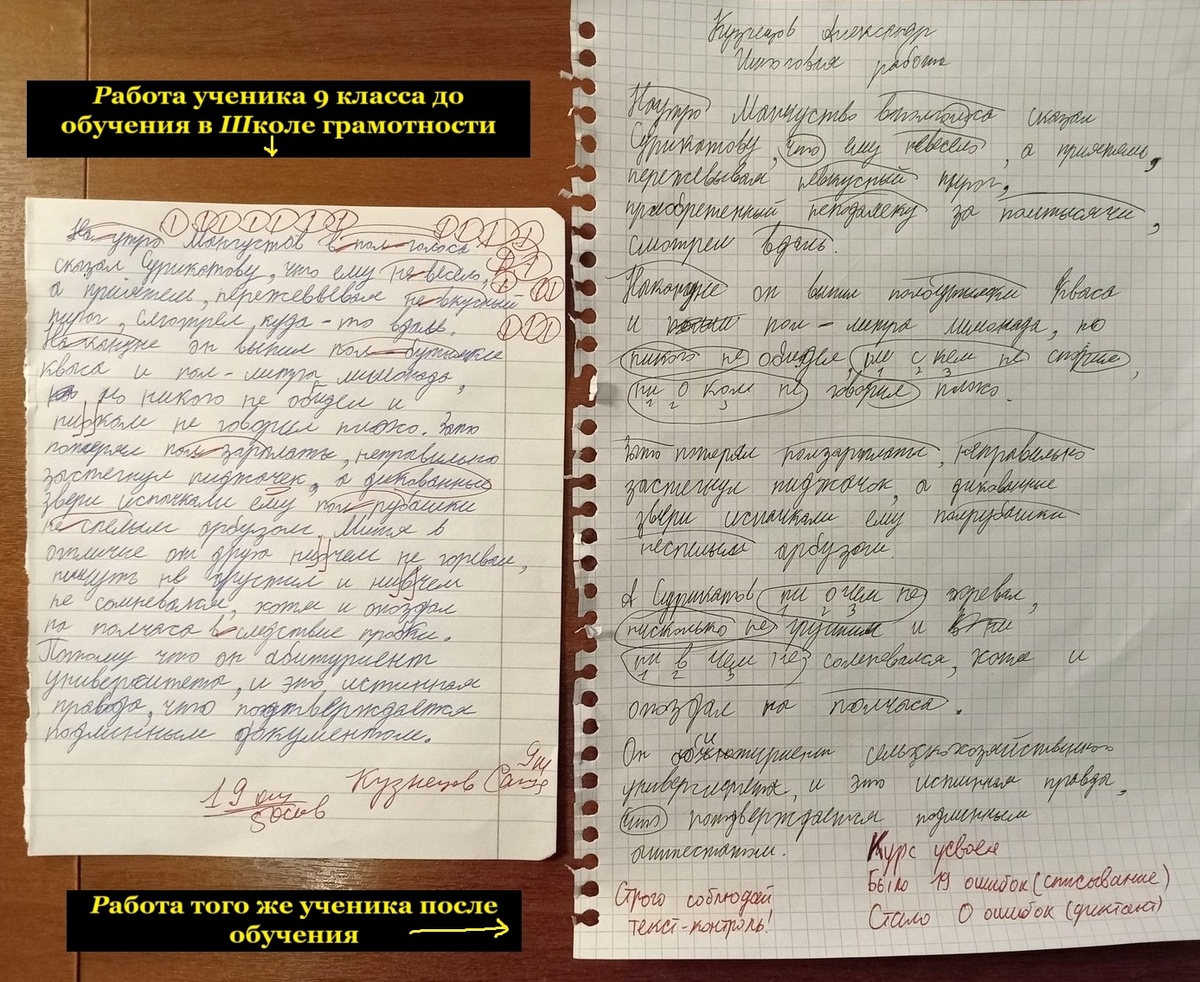 Работа ученика 9 класса до
обучения в Школе грамотности
На утро Мангустов в пол-голоса
сказал Сурикатову, что ему не весело,
а приятель, пережёвывая не вкусный
пирог, смотрел куда-то вдаль.
На кануне он выпил пол-бутылки
кваса и пол-литра лимонада,
но никого не обидел и
ни ком не говорил плохо. Зато
потерял пол-зарплаты, неправильно
застегнул пиджачек, а диковинные
звери испачкали ему пол-рубашки
не спелым арбузом. Митя в
отличие от друга ни чем не горевал,
ничуть не грустил и ни чем
не сомневался, хотя и опоздал
на полчаса в следствие пробки.
Потому что он абитуриент
университета, и это истинная
правда, что подтверждается
подлинным документом.
Кузнецов Саша
19 ош
Работа того же ученика после
обучения
Кузнецов Александр
Итоговая работа
Наутро Мангустов вполголоса сказал
Сурикатову, что ему невесело, а приятель,
пережёвывая невкусный пирог,
приобретенный неподалеку за полтысячи,
смотрел вдаль.
Накануне он выпил полбутылки кваса
и пол-литра лимонада, но
никого не обидел, ни с кем не спорил,
1 2 3
ни о ком не говорил плохо.
1 2 3
Зато потерял ползарплаты, неправильно
застегнул пиджачок, а диковинные
звери испачкали ему полрубашки
неспелым арбузом.
А Сурикатов ни о чем не горевал,
1 2 3
нисколько не грустил и
ни в чем не сомневался, хотя и
1 2 3
опоздал на полчаса.
Он абитуриент сельскохозяйственного
университета, и это истинная правда,
что подтверждается подлинным
аттестатом.
Курс усвоен
Было 19 ошибок (списывание)
Стало 0 ошибок (диктант)
Строго соблюдай
текст-контроль!